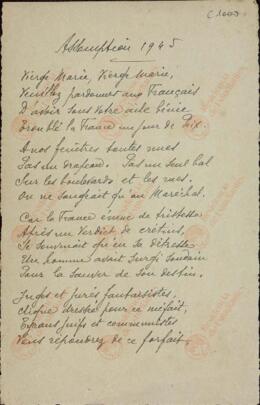 C 1003
Assomption 1945
Vierge Marie, Vierge Marie,
Veuillez pardonner aux Français
D'avoir sous votre aile bénie
Troublé la France un jour de Paix.
A nos fenêtres toutes nues
Pas un drapeau. Pas un seul bal
Sur les boulevards et les rues.
On ne songeait qu'au Maréchal.
Car la France émue de tristesse
Après un verdict de crétins,
Se souvenait qu'en sa détresse
Un homme avait surgi soudain
Pour la sauver de son destin.
Juges et jurés fantaisistes,
Clique dressée pour ce méfait,
Tyrans juifs et communistes
Vous répondrez de ce forfait.